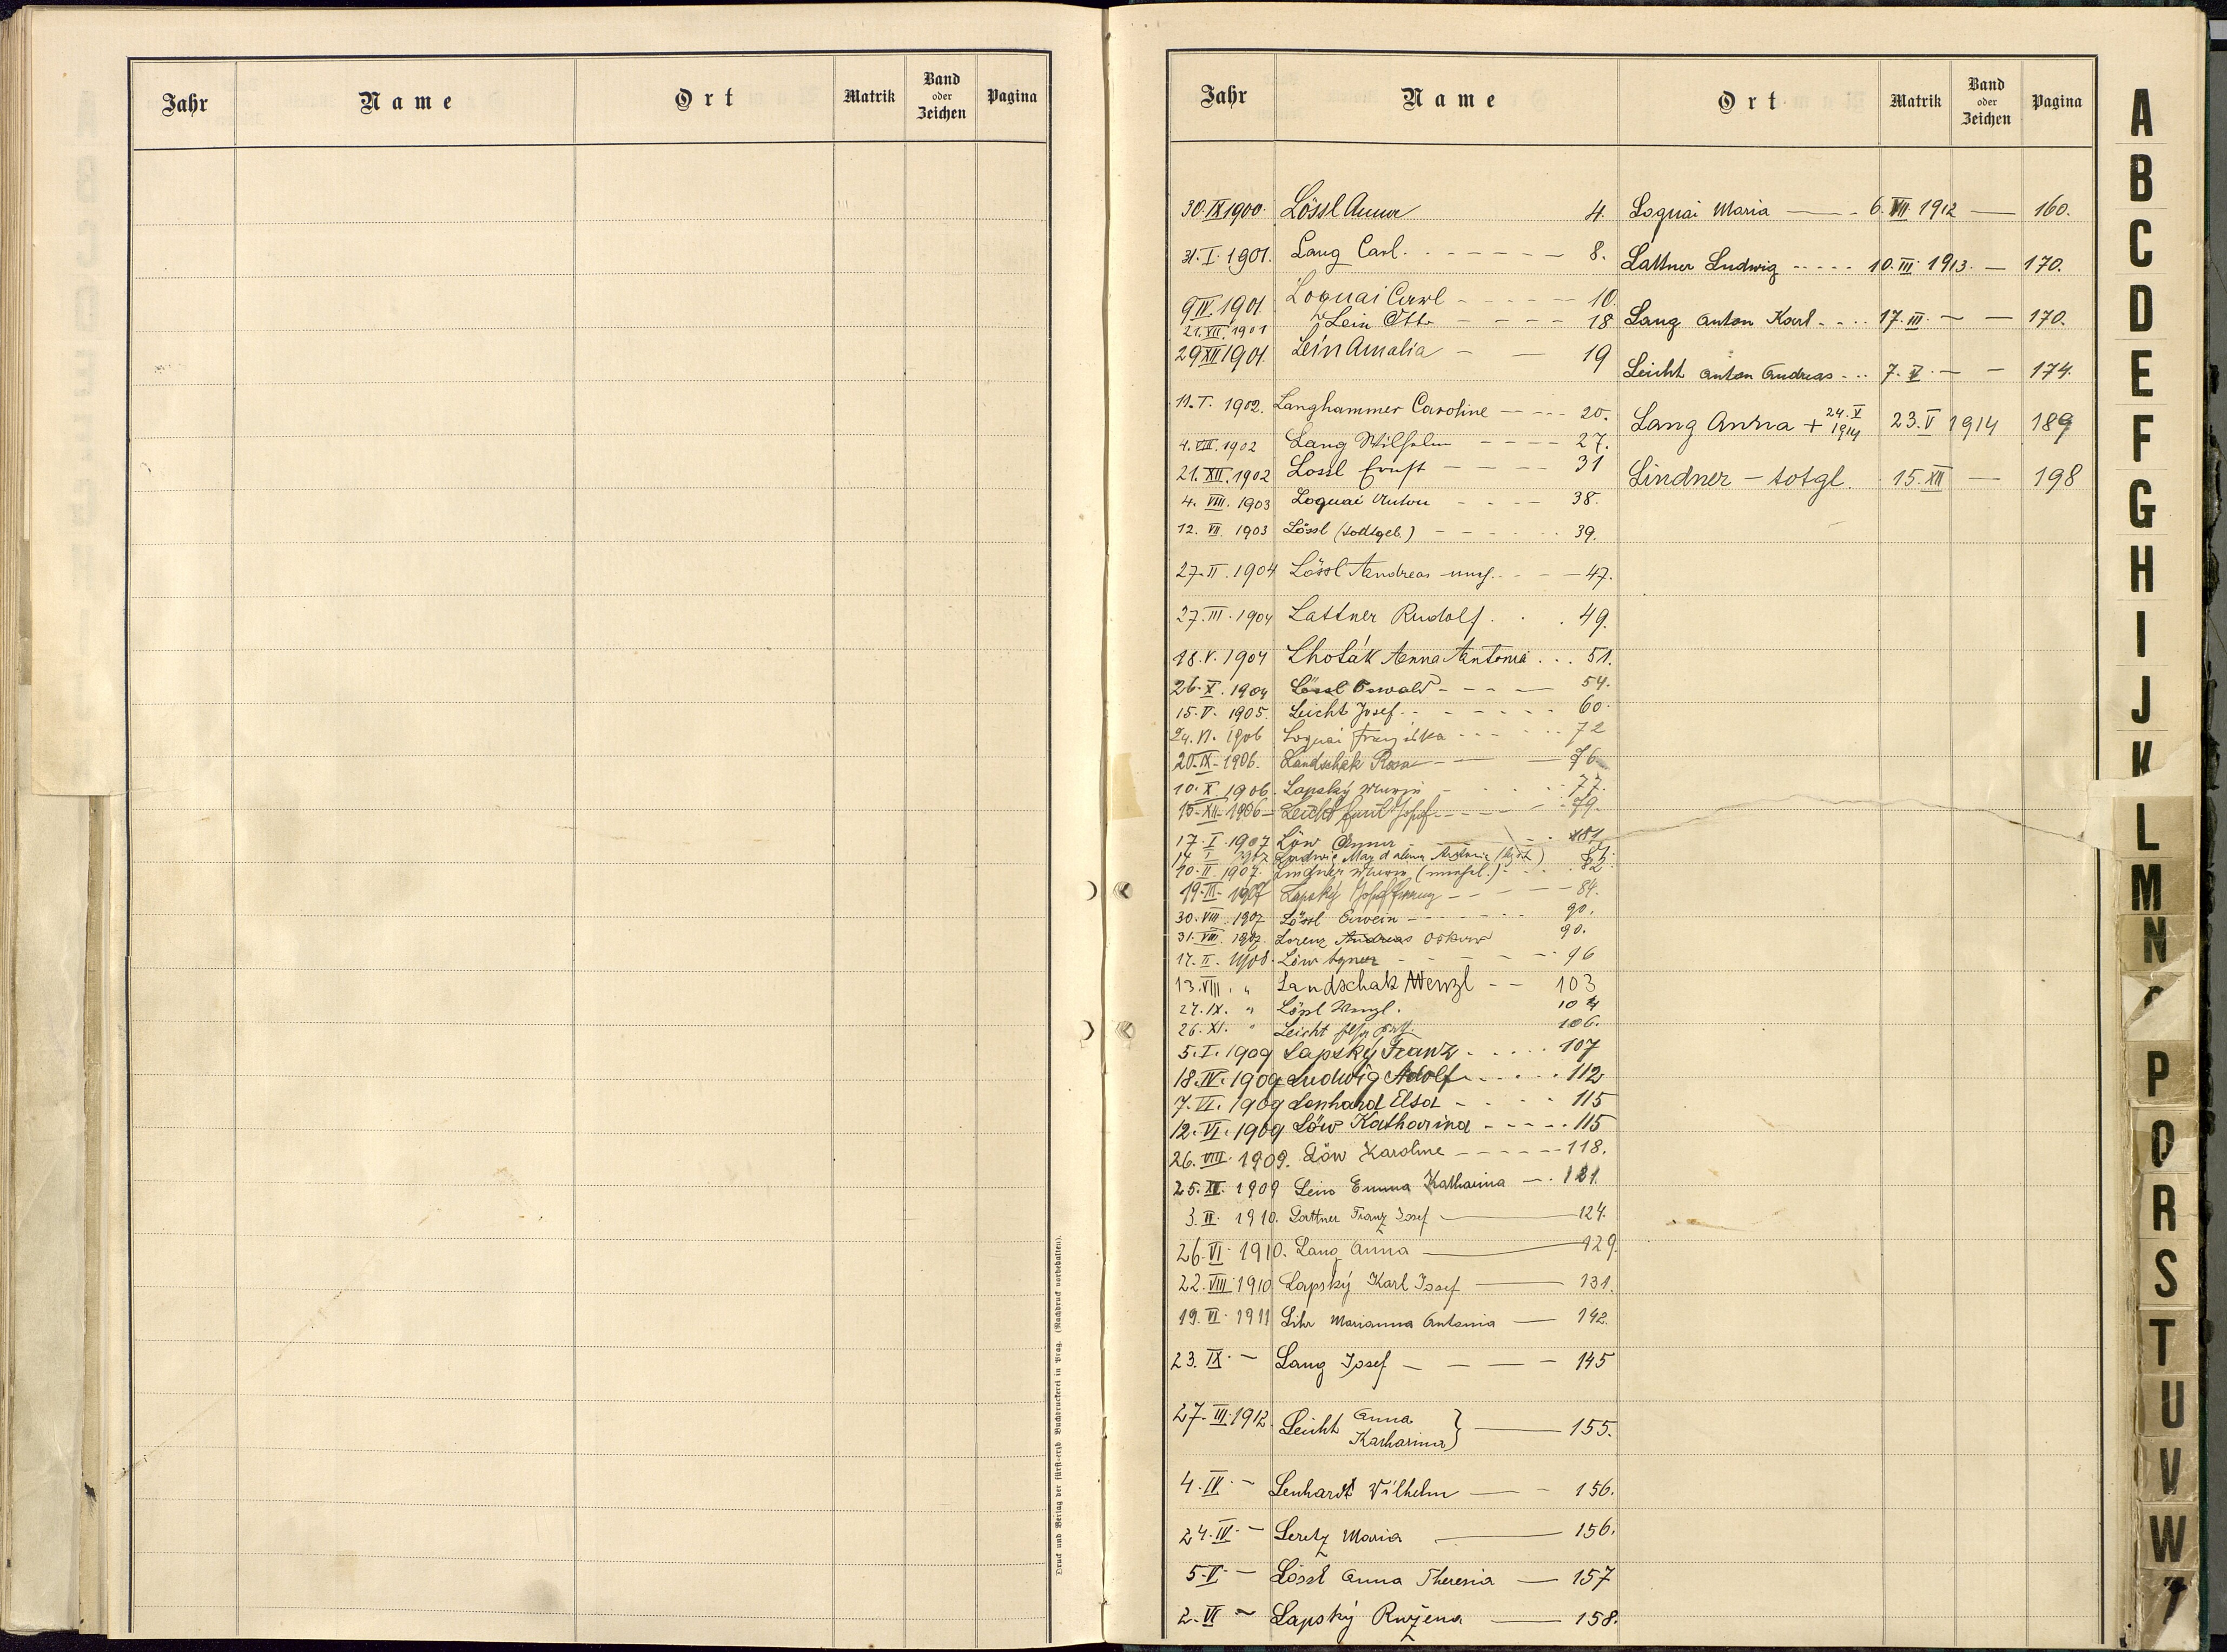 Jahr Name Ort Matrik Band oder Zeichen Pagina
Druck und Verlag der fürst-erzb. Buchdruckerei in Prag. (Nachdruck vorbehalten).
Jahr Name Ort Matrik Band oder Zeichen Pagina
30. IX 1900. Lössl Anna 4.
31. I. 1901. Lang Carl. - - - - - - 8.
9 IV. 1901. Loquai - - - - - 10.
21. XII. 1901 Lein Otto - - - - 18
29 XII 1901. Lein Amalia - — 19
11. I. 1902. Langhammer Caroline - - - - 20.
4. VIII. 1902 Lang Wilhelm - - - - 27.
21. XII. 1902 Lössl Ernst - - - - 31
4. VIII. 1903 Loquai Anton - - - 38.
12. VII. 1903 Lössl (todtgeb.) - - - - - 39.
27. II. 1904 Lössl Andreas - - - 47.
27. III. 1904 Lattner Rudolf . . . 49.
18. V. 1904 Lhoták Anna Antonia . . . 51.
26. X. 1904 Lössl Oswald - - - — 54.
15. V. 1905. Leicht Josef. - - - - - - 60.
24. VI. 1906 Loquai Franziska - - - - - 72
20. IX. 1906. Landschak Rosa - — — 76
10. X. 1906. Lapský - - - - 77.
15. XII. 1906 - Leicht Josef - - - - 79.
17. I. 1907 Löw Anna - - - 81
Ludwig Magdalena
10. II. 1907. Lindner . . . 82.
19. III. 1907 Lapský Josef - - - - 84.
30. VIII. 1907 Lössl Erwein - - - - - - 90.
31. VIII. 1907. Lorenz Andreas Oskar 90.
17. II. 1908. Löw Agnes - - - - 96
13. VIII. " Landschak Wenzl - - 103
27. IX. " Lössl Wenzl. 104
26. XI. " Leicht 106.
5. I. 1909 Lapský Franz . . . . . 107
18. IV. 1909 Ludwig Adolf - . . . . 112
7. VI. 1909 Lenhard Elsa - - - - 115
12. VI. 1909 Löw Katharina - - - - . 115
26. VIII. 1909. Löw Karoline - - - - - - 118.
25. XI. 1909 Lein Emma Katharina — . 121.
3. II. 1910. Lattner Franz Josef —— 124.
26. VI. 1910. Lang Anna —— 129.
22. VIII. 1910 Lapský Karl Josef —— 131.
19. VI. 1911 Lihr Marianna Antonia — 142.
23. IX. — Lang Josef - - - - 145
27. III. 1912. Leicht Anna
Katharina } —— 155.
4. IV. — Lenhardt Wilhelm — - 156.
24. IV. — Leretz Maria —— 156.
5. V. — Lössl Anna Theresia — 157
2. VI — Lapský Ružena —— 158.
Loquai Maria —— 6. VII. 1912 — 160.
Lattner Ludwig - - - - - 10. III. 1913. — 170.
Lang Anton Karl - . . . 17. III. — — 170.
Leicht Anton Andreas . . . 7. V. — — 174.
Lang Anna + 24. V 1914 23. V 1914 189
Lindner — totgb. 15. XII — 198
A
B
C
D
E
F
G
H
I
J
K
L
M
N
P
Q
R
S
T
U
V
W